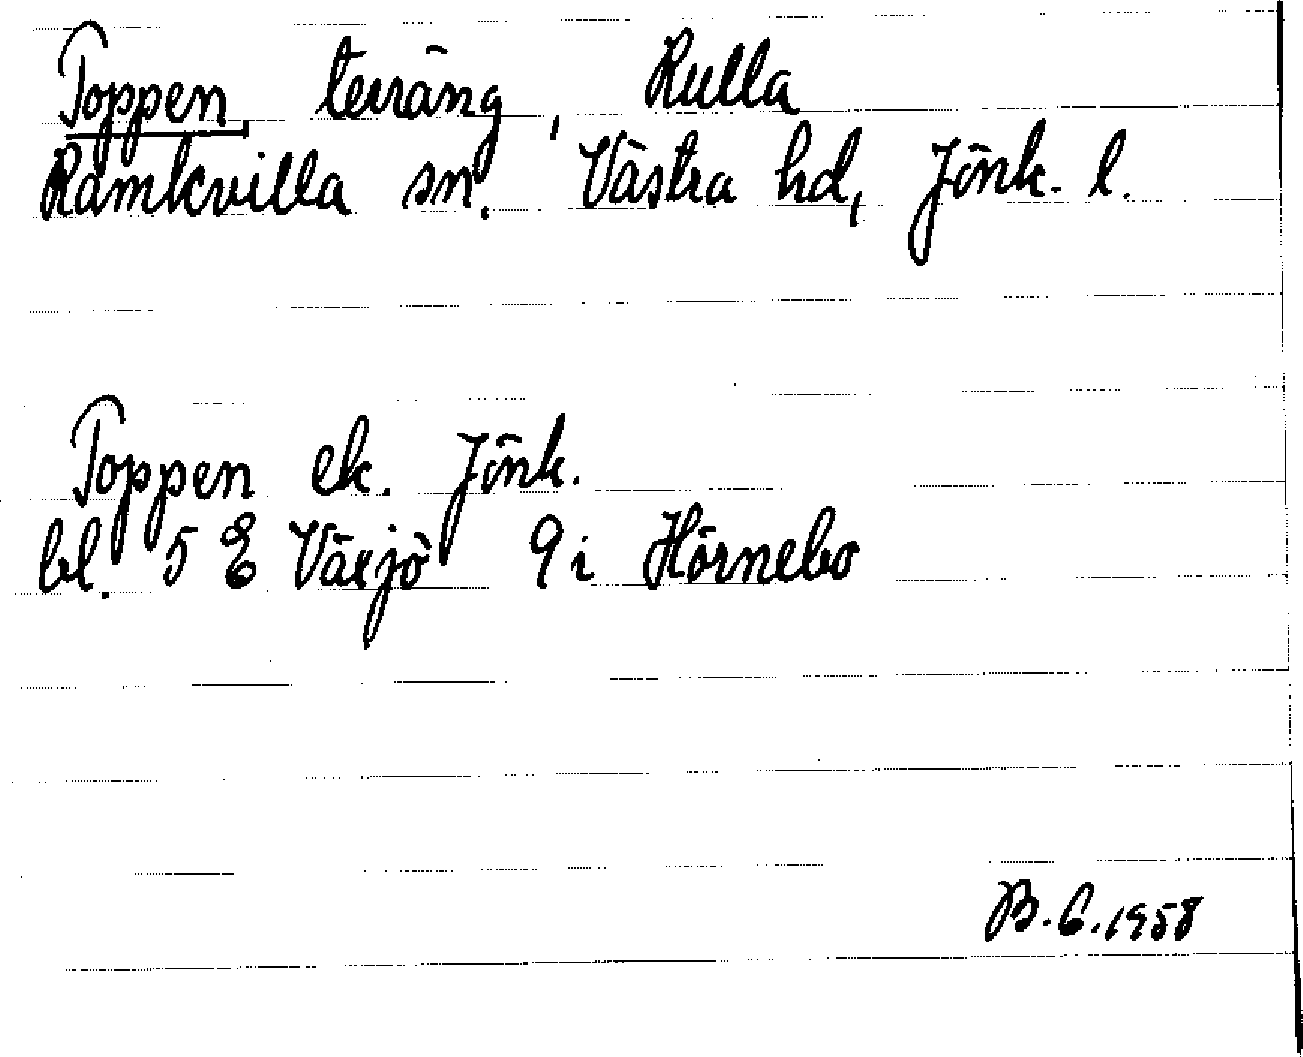 Toppen, terräng, Rulla
Ramkvilla sn. Västra hd, Jönk. l.
Toppen ek. Jönk.
bl. 5 E Växjö 9 i Hörnebo
B. E. 1958